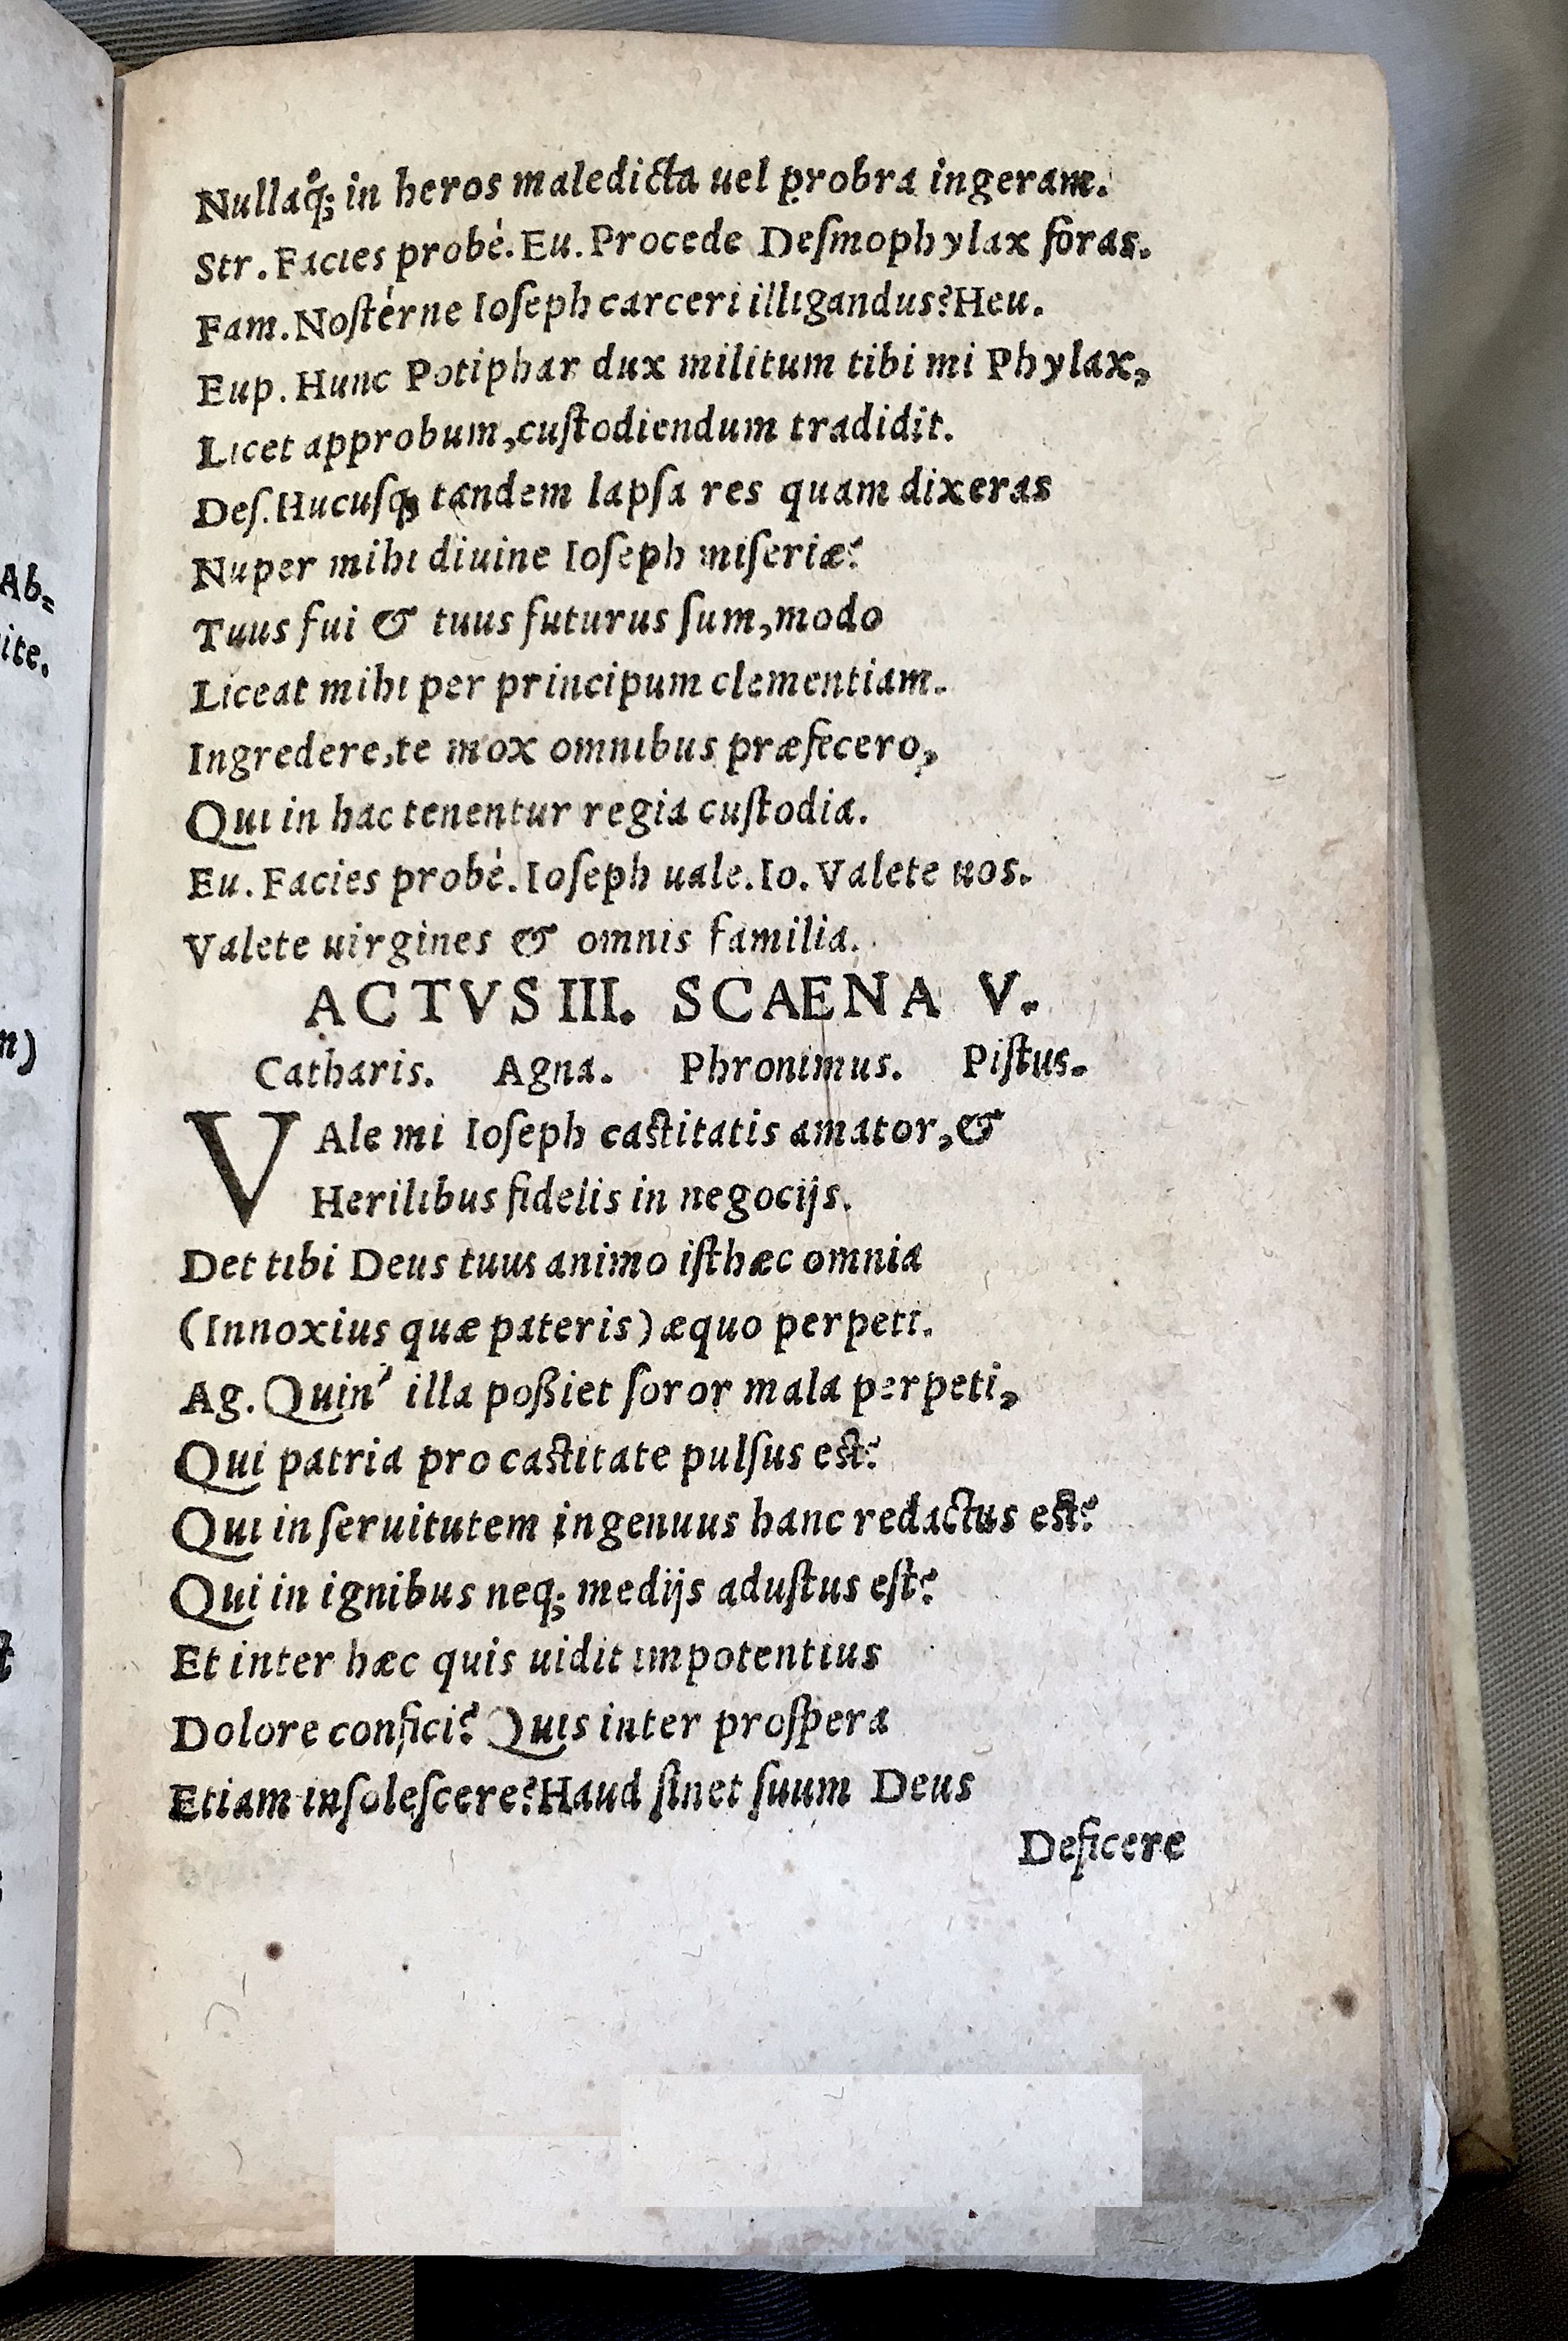 Ab=
ite.
n)
Nullaq́; in heros maledicta uel probra ingeram.
Str. Facies probè. Eu. Procede Deſmophylax foras.
Fam. Noſtérne Ioſeph carceri illigandus? Heu.
Eup. Hunc Potiphar dux militum tibi mi Phylax,
Licet approbum, cuſtodiendum tradidit.
Deſ. Hucuſq; tandem lapſa res quam dixeras
Nuper mihi diuine Ioſeph miſeriæ?
Tuus fui & tuus futurus ſum, modo
Liceat mihi per principum clementiam.
Ingredere, te mox omnibus præfecero,
Qui in hac tenentur regia cuſtodia.
Eu. Facies probè. Ioſeph uale. Io. Valete uos.
Valete uirgines & omnis familia.
ACTVS III. SCAENA V.
Catharis. Agna. Phronimus. Piſtus.
VAle mi Ioſeph caſtitatis amator, &
Herilibus fidelis in negocijs.
Det tibi Deus tuus animo iſthæc omnia
(Innoxius quæ pateris) æquo perpeti.
Ag. Quin' illa poßiet ſoror mala perpeti,
Qui patria pro caſtitate pulſus eſt?
Qui in ſeruitutem ingenuus hanc redactus eſt?
Qui in ignibus neq; medijs aduſtus eſt?
Et inter hæc quis uidit impotentius
Dolore confici? Quis inter proſpera
Etiam inſoleſcere? Haud ſinet ſuum Deus
Deficere